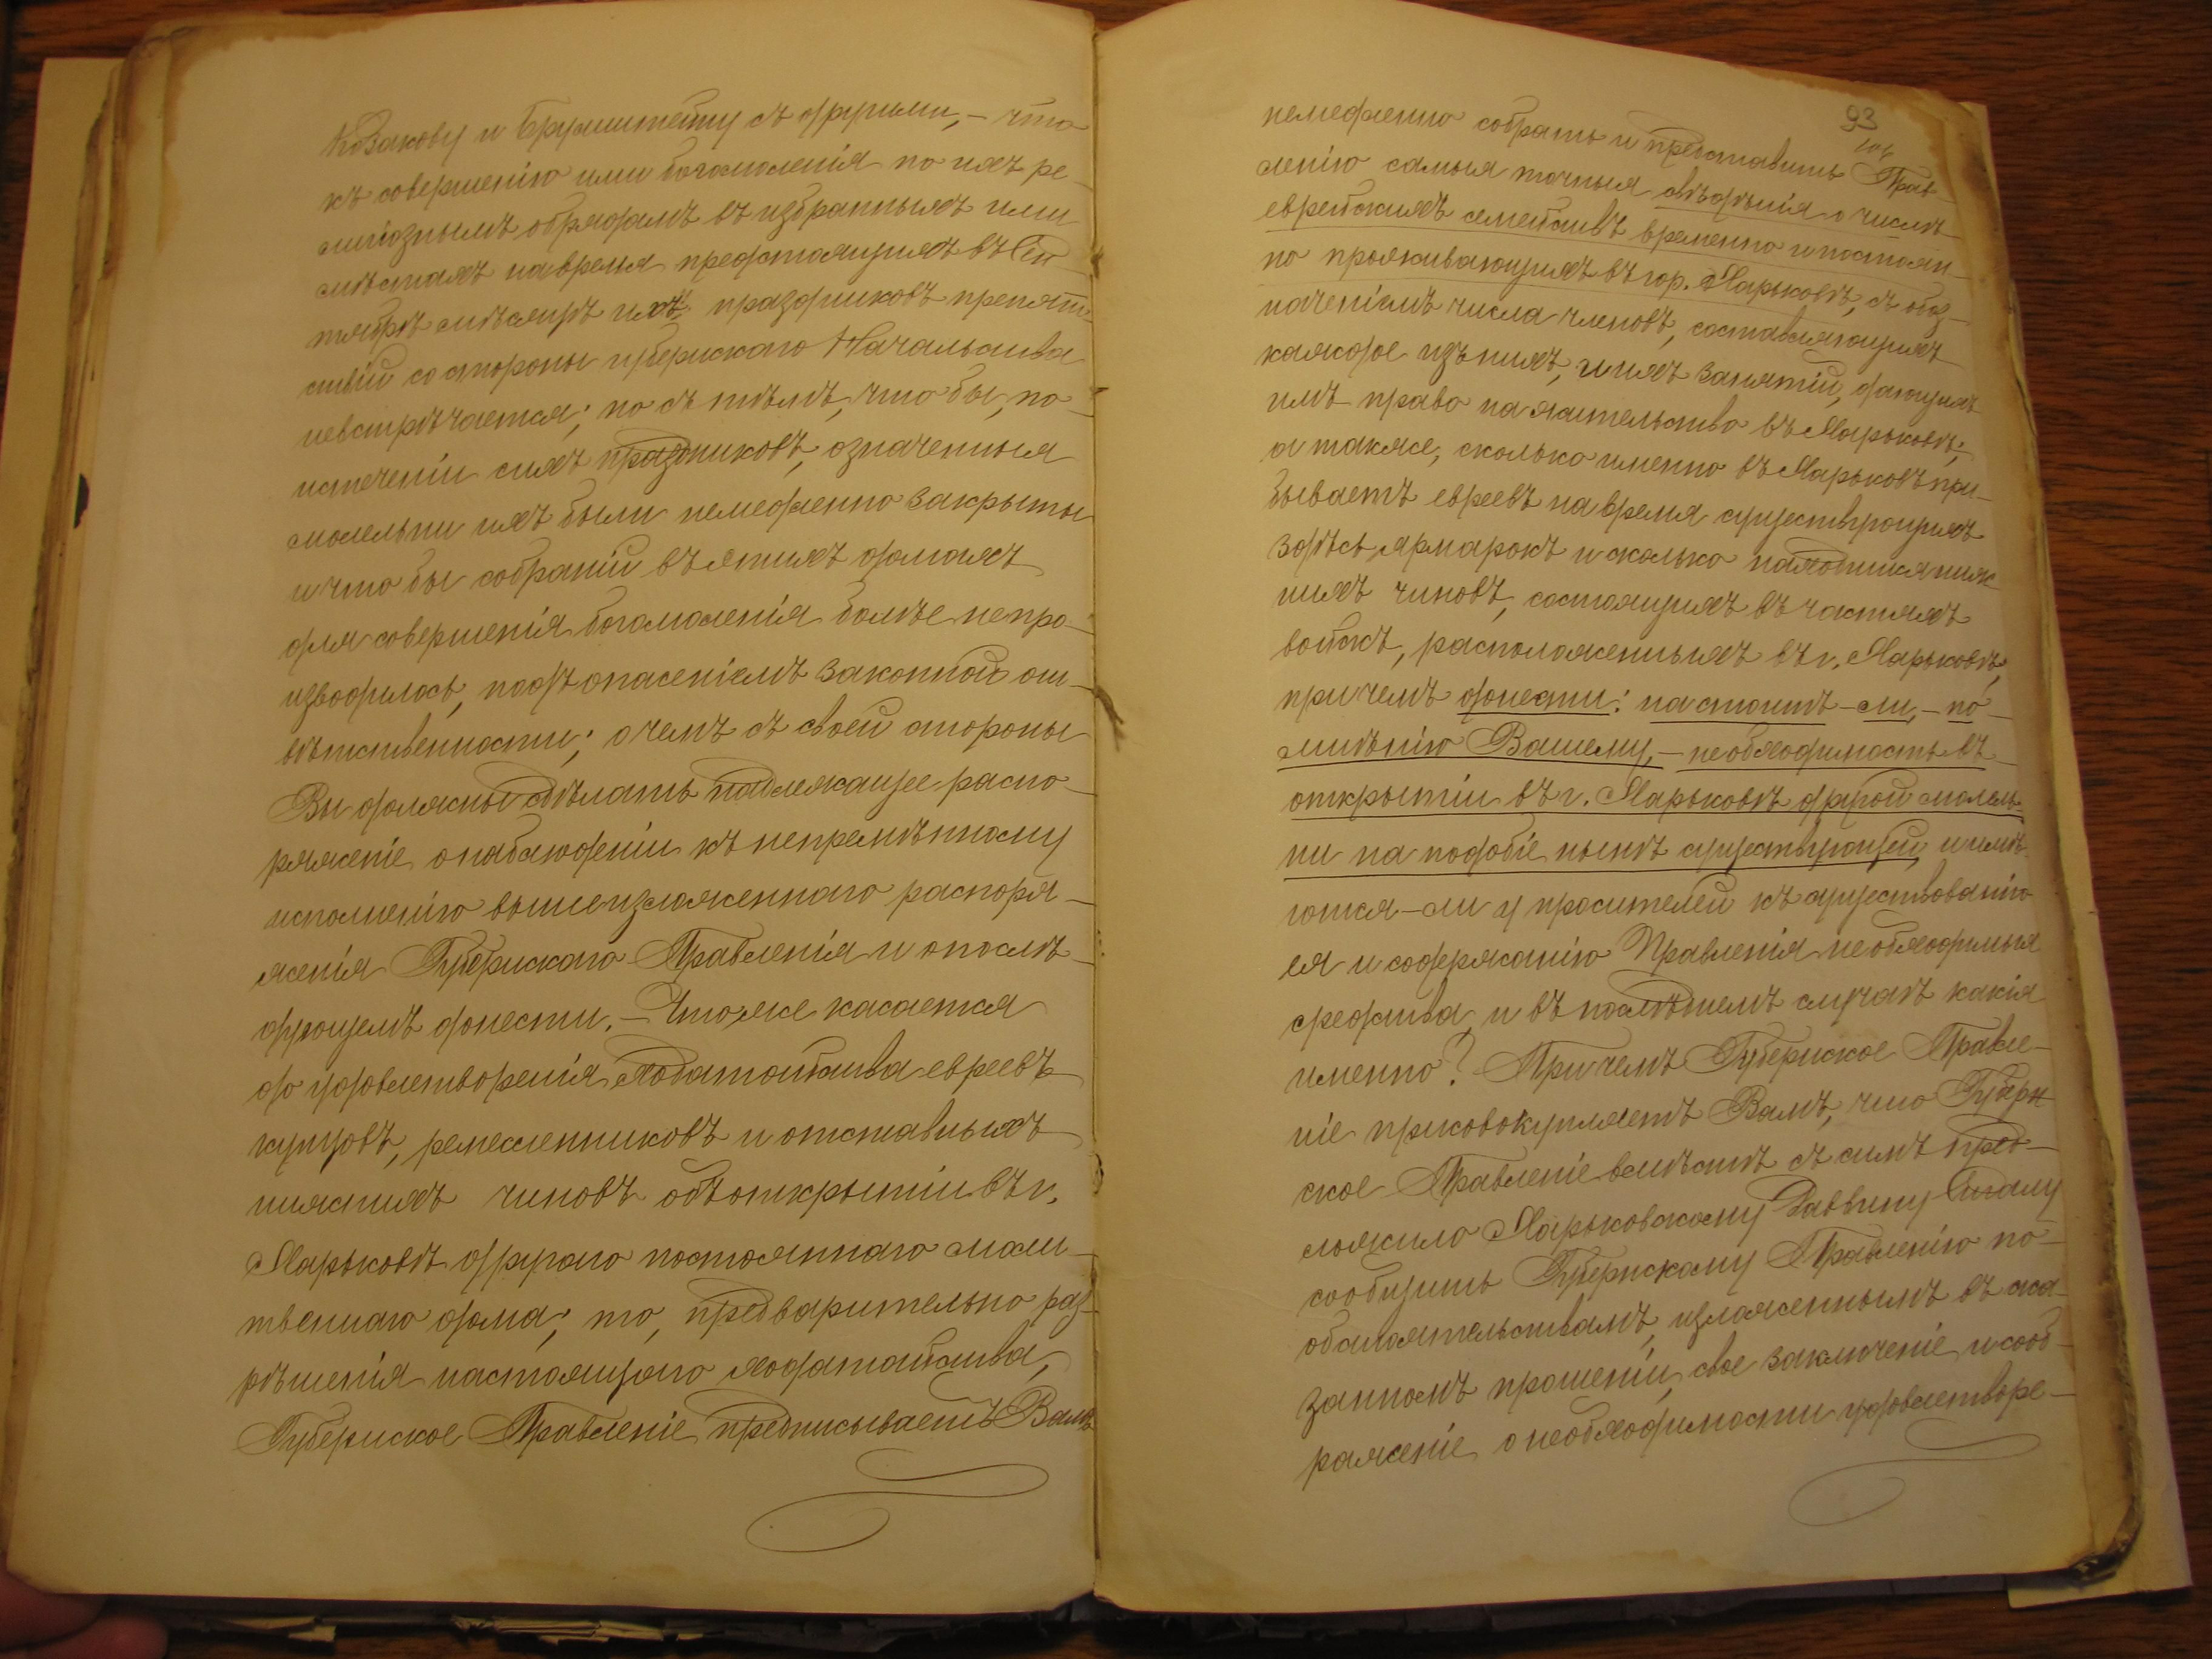 Козакову и Бруминтейну съ другими, – что
къ совершенію ими богомоленія по ихъ ре-
лигіознымъ обрядамъ въ избранныхъ ими
мѣстахъ на время предстоящихъ въ Сен-
тябрѣ мѣсяцѣ ихъ праздниковъ препят-
ствій со стороны губернскаго Начальства
невстрѣчается; но съ тѣмъ, что бы, по
истеченіи сихъ праздниковъ, означенныя
молельни ихъ были немедленно закрыты
и что бы собраній въ этихъ домахъ
для совершенія богомоленія болѣе непро-
изводилось, подъ опасеніемъ законной от-
вѣтственности; о чемъ съ своей стороны
Вы должны сдѣлать надлежащее распо-
ряженіе о наблюденіи къ непремѣнному
исполненію вышеизложеннаго распоря-
женія Губернскаго Правленія и о послѣ-
дующемъ донести. – Что же касается
до удовлетворенія ходатайства евреевъ
купцовъ, ремесленниковъ и отставныхъ
нижнихъ чиновъ объ открытіи въ г.
Харьковѣ другаго постояннаго моли-
твеннаго дома; то, предварительно раз-
рѣшенія настоящаго ходатайства,
Губернское Правленіе предписываетъ Вамъ
93
немедленно собрать и представить Прав-
ленію самыя точныя свѣдѣнія о числѣ
еврейскихъ семействъ временно и постоян-
но проживающихъ въ гор. Харьковѣ, съ обоз-
наченіемъ числа членовъ, составляющихъ
каждое изъ нихъ, и ихъ занятій, дающихъ
имъ право на жительство въ Харьковѣ;
а также, сколько именно въ Харьковъ при-
бываетъ евреевъ на время существующихъ
здѣсь ярмарокъ и сколько находится ниж-
нихъ чиновъ, состоящихъ въ частяхъ
войскъ, расположенныхъ въ г. Харьковѣ,
при чемъ донести: настоитъ-ли, – по
мнѣнію Вашему, – необходимость въ
открытіи въ г. Харьковѣ другой молель-
ни на подобіе нынѣ существующей, и имѣ-
ются-ли у просителей къ существованію
ея и содержанію Правленія необходимыя
средства, и въ послѣднемъ случаѣ какія
именно? При чемъ Губернское Правле-
ніе присовокупляетъ Вамъ, что Губерн
ское Правленіе вмѣстѣ съ симъ пред-
ложило Харьковскому Раввину Сигалу
сообщить Губернскому Правленію по
обстоятельствамъ, изложеннымъ въ ска-
занномъ прошеніи, свое заключеніе и сооб-
раженіе о необходимости удовлетворе-